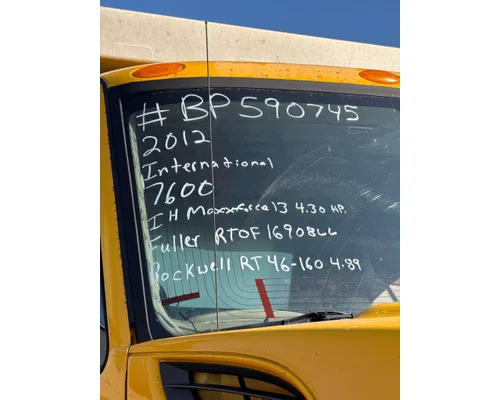 # BP590745
2012
International
7600
IH Maxxforce13 4.30 HP.
Fuller RTOF16908LL
Rockwell RT 46-160 4.89